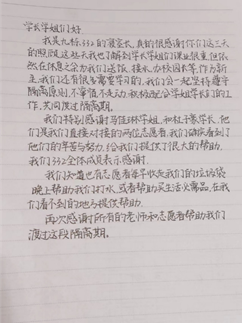 学长学姐们好
我是九栋332的寝室长,真的很感谢你们这三天
的照顾,这些天也了解到学长学姐们课也很重,但依
然在休息之余为我们送饭、接水、办校园卡等,作为新
生,我们还有很多需要学习的,我们会一起坚持遵守
隔离原则,不事值不走动,积极配合学姐学长们的工
作,共同度过隔离期。
我们特别感谢马佳琳学姐,和杜子豪学长,他
们是我们直接对接的两位志愿者,我们确实看到了
他们的辛苦与努力,给我们提供了很大的帮助,
我们332全体成员表示感谢。
我们知道也有志愿者等早收走我们的垃圾袋
晚上帮助我们打水,或者帮助买生活必需品,在我
们看不到的地方提供帮助。
再次感谢所有的老师和志愿者帮助我们
渡过这段隔离期。